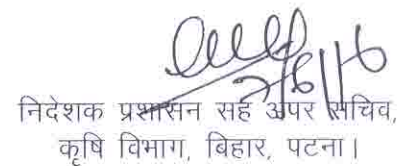 निदेशक प्रशासन सह अपर सचिव,
कृषि विभाग, बिहार, पटना।